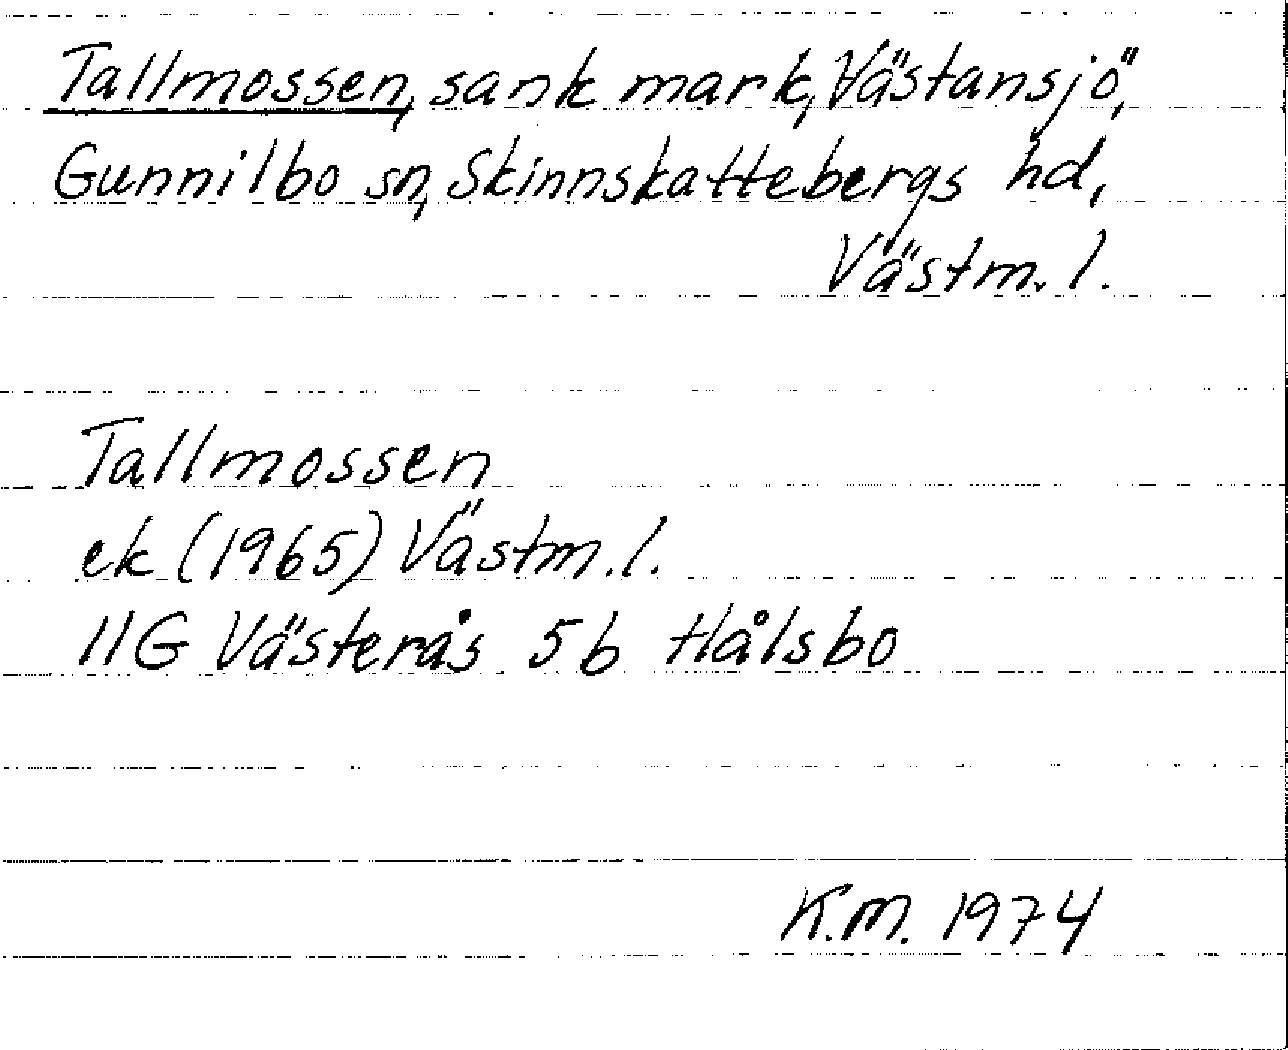 Tallmossen, sank mark, Västansjö,
Gunnilbo sn, Skinnskattebergs hd,
Västm. l.
Tallmossen
ek (1965) Västm. l.
11G Västerås 5b Hålsbo
K.M. 1974